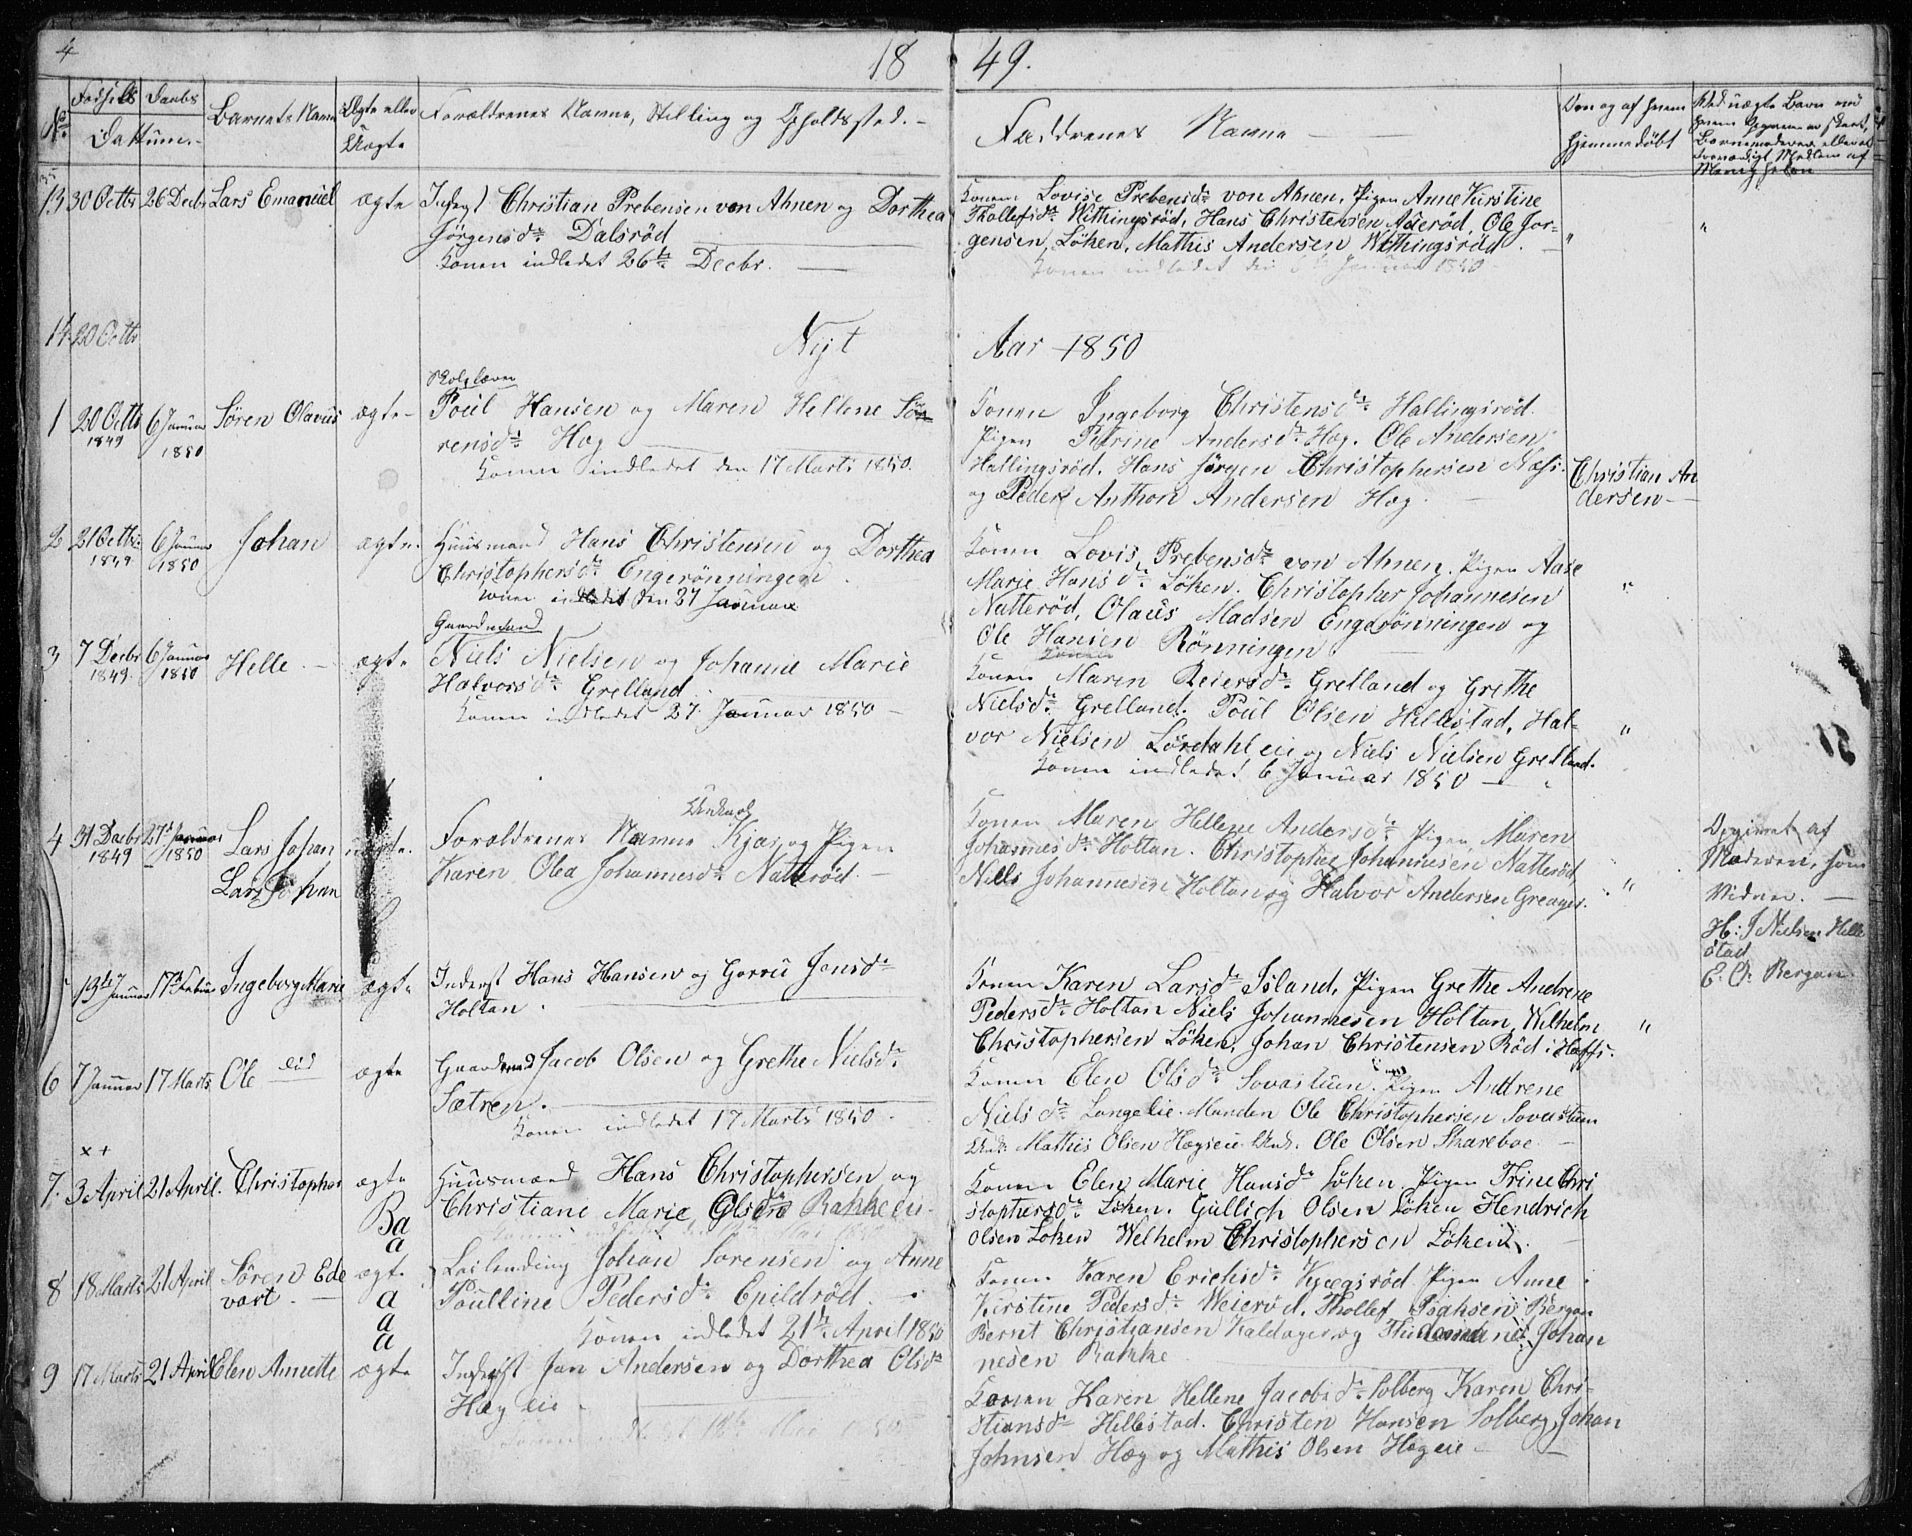 4
18 49.
No. Fødsels Daabs Dattum.
Barnets Navn
Ægte eller Uægte
Forældrenes Navne, Stilling og Opholdssted.
Faddrenes Navne
Von og af hvem hjemmedöbt
13 30 Octbr 26 Decbr Lars Emanuel ægte Inderst Christian Prebensen von Ahnen og Dorthea
Jörgensdr. Dalsröd
Konen indledet 26de Decbr.
Konen Lovise Prebensdr von Ahnen, Pigen Anne Kirstine
Thollefsdr. Withingsröd, Hans Christensen Aseröd, Ole Jör-
gensen Löken, Mathis Andersen Withingsröd. " "
Konen indledet den Januar 1850
14 20 Octbr
Nyt Aar 1850
1 20 Octb 1849 6 Januar 1850 Sören Olavus ægte
Poul Hansen og Maren Hellene Sö-
rensdr. Høg
Konen indledet den 17 Marts 1850.
Konen Ingeborg Christensdr. Hallingsröd.
Pigen Petrine Andersdr. Høg. Ole Andersen
Hallingsröd. Hans Jörgen Christophersen Næss.
og Peder Anthon Andersen Høg
Christian An
dersen
2 21 Octbr 1849 6 Januar 1850 Johan ægte Huusmand Hans Christensen og Dorthea
Christophersdr. Engerönningen
Konen indledet den 27 Januar
Konen Lovis Prebensdr von Ahnen. Pigen Aase
Marie Hansdr. Löken. Christopher Johannesen
Natteröd, Olaus Madsen Engerönningen og
Ole Hansen Rönningen "
3 7 Decbr 1849. 6 Januar 1850 Helle ægte
Gaardmand
Niels Nielsen og Johanne Marie
Halvorsdr. Grelland
Konen indledet 27 Januar 1850
Konen
Konen Maren Reiersdr. Grelland og Grethe
Nielsdr. Grelland. Poul Olsen Hillestad, Hal-
vor Nielsen Lördahl eie og Niels Nielsen Grelland. "
Konen indledet 6 Januar 1850
4 31 Decbr 1849 27 Januar 1850 Lars Johan uægte.
Lars Johan
Forældrenes Navne Kjær og Pigen
Karen Olea Johannesdr. Natteröd.
Konen Maren Hellene Andersdr Pigen Maren
Johannesdr Holtan. Christopher Johannesen Natteröd,
Niels Johannesen Holtan og Halvor Andersen Greager. "
Opgivet af
Moderen, som
Vidner.
H: J Nielsen Helle
stad
E. Ch. Bergan
13de Januar 17de Februar Ingeborg Marie ægte Inderst Hans Hansen og Jensdr
Holtan.
Konen Karen Larsdr. Island, Pigen Grethe Andrine
Pedersdr. Holtan Niels Johannesen Holtan, Wilhelm
Christophersen Löken, Johan Christensen Röd i Haffs. "
6 7 Januar 17 Marts Ole ægte Gaardmand Jacob Olsen og Grethe Nielsdr.
Sætren.
Konen indledet 17 Marts 1850.
Konen Elen Olsdr. Sovastuen. Pigen Andrene
Nielsdr. Langelie. Manden Ole Christophersen Sovastuen
Unk. Mathis Olsen Høgseie Unk. Ole Olsen Skareboe
x +
7. 3 April 21 April. Christopher ægte Huusmand Hans Christophersen og
Christiane Marie Olsdr Rakke eie.
Ba
a
Konen Elen Marie Hansdr Löken Pigen Trine Chri
stophersdr. Löken. Gullich Olsen Löken Hendrich
Olsen Löken Welhelm Christophersen Löken.
8 18 Marts 21 April Sören Ede
vart.
ægte
a
a
a
Johan Sorensen og Anne
Poulline Pedersdr. Epildröd.
Konen indledet 21de April 1850
Konen Karen Erichsdr. Pigen Anne
Kirstine Pedersdr. Weieröd. Thollef Isaksen Bergan
Bernt Christiansen Kaldager, og Johan
nesen Rakke
9 17 Marts 21 April Elen Annette ægte Inderst Jan Andersen og Dorthea Olsdr
Høg eie
Konen Karen Hellene Jacobsdr. Solberg Karen Chri-
stiansdr Hillestad. Christen Hansen Solberg, Johan
Johnsen Høg og Mathis Olsen Høgeie